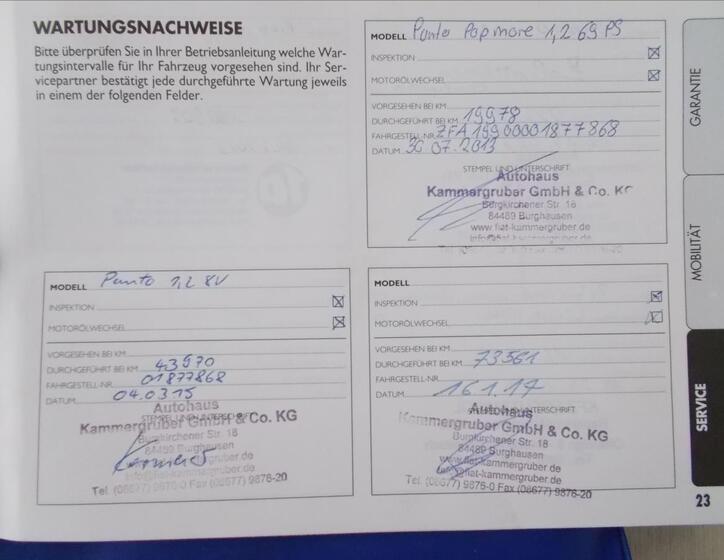 WARTUNGSNACHWEISE
Bitte überprüfen Sie in Ihrer Betriebsanleitung welche War-
tungsintervalle für Ihr Fahrzeug vorgesehen sind. Ihr Ser-
vicepartner bestätigt jede durchgeführte Wartung jeweils
in einem der folgenden Felder.
MODELL Punto Popmore 1,2 69 PS
INSPEKTION
MOTORÖLWECHSEL
VORGESEHEN BEI KM
DURCHGEFÜHRT BEI KM 19978
FAHRGESTELL-NR. ZFA19900001877868
DATUM 30.07.2013
STEMPEL UND UNTERSCHRIFT
Autohaus
Kammergruber GmbH & Co. KG
Burgkirchener Str. 18
84489 Burghausen
www.fiat-kammergruber.de
info@fiat-kammergruber.de
MODELL Punto 1,2 8V
INSPEKTION
MOTORÖLWECHSEL
VORGESEHEN BEI KM
DURCHGEFÜHRT BEI KM 43970
FAHRGESTELL-NR. 01877868
DATUM 04.03.15
STEMPEL UND UNTERSCHRIFT
Autohaus
Kammergruber GmbH & Co. KG
Burgkirchener Str. 18
84489 Burghausen
info@fiat-kammergruber.de
Tel. (08677) 9876-0 Fax (08677) 9876-20
MODELL
INSPEKTION
MOTORÖLWECHSEL
VORGESEHEN BEI KM
DURCHGEFÜHRT BEI KM 73561
FAHRGESTELL-NR.
DATUM 16.1.17
STEMPEL UND UNTERSCHRIFT
Autohaus
Kammergruber GmbH & Co. KG
Burgkirchener Str. 18
84489 Burghausen
www.fiat-kammergruber.de
info@fiat-kammergruber.de
Tel. (08677) 9876-0 Fax (08677) 9876-20
GARANTIE
MOBILITÄT
SERVICE
23